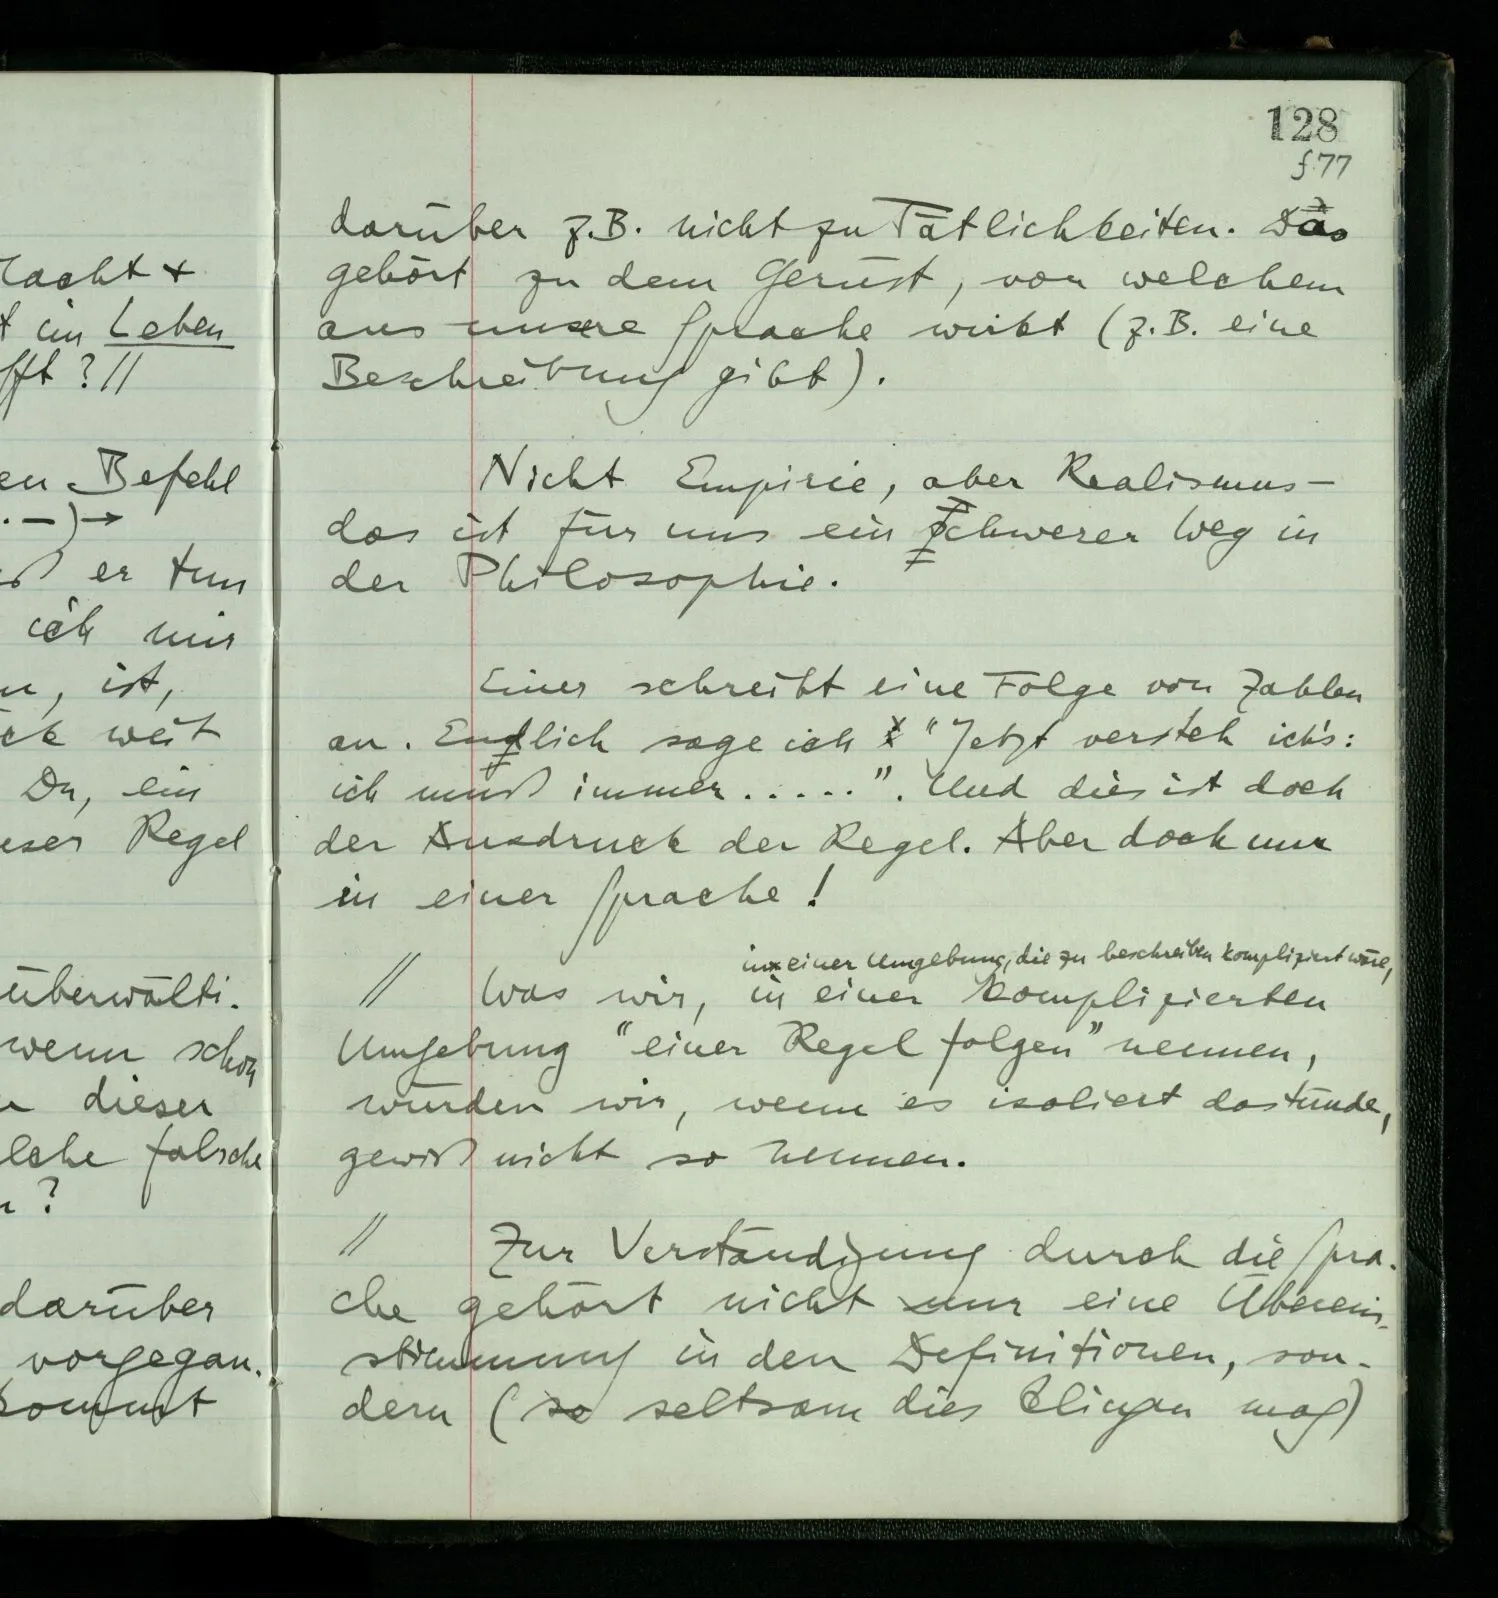 128
f 77
darüber z.B. nicht zu Tätlichkeiten. Das
gehört zu dem Gerüst, von welchem
aus unsere Sprache wirkt (z.B. eine
Beschreibung gibt).
Nicht Empirie, aber Realismus –
das ist für uns ein schwerer Weg in
der Philosophie.
Einer schreibt eine Folge von Zahlen
an. Endlich sage ich "Jetzt versteh ich's:
ich muß immer ....." . Und dies ist doch
der Ausdruck der Regel. Aber doch nur
in einer Sprache!
in einer Umgebung, die zu beschreiben kompliziert wäre,
// Was wir, in einer komplizierten
Umgebung "einer Regel folgen" nennen,
würden wir, wenn es isoliert dastünde,
gewiß nicht so nennen.
// Zur Verständigung durch die Spra-
che gehört nicht nur eine Überein-
stimmung in den Definitionen, son-
dern (so seltsam dies klingen mag)
racht +
im Leben
fft ? //
en Befehl
. . – ) →
er tun
ich mir
n, ist,
weit
Du, ein
eser Regel
überwälti-
wenn schon
dieser
lche falsche
n?
darüber
vorgegan-
kommt